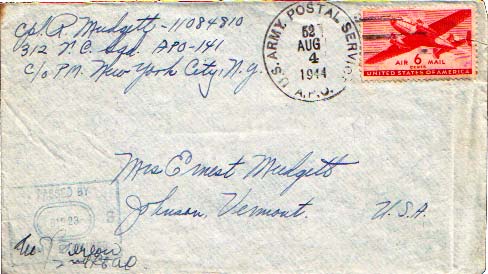 Cpl R. Mudgett - 11084810
312 N.C. Sqd. APO-141
C/o P.M. New York City, N.Y.
U.S. ARMY POSTAL SERVICE
52
AUG
4
1944
A.P.O.
AIR 6 MAIL
CENTS
UNITED STATES OF AMERICA
Mrs Ernest Mudgett
Johnson, Vermont. U.S.A.
PASSED BY